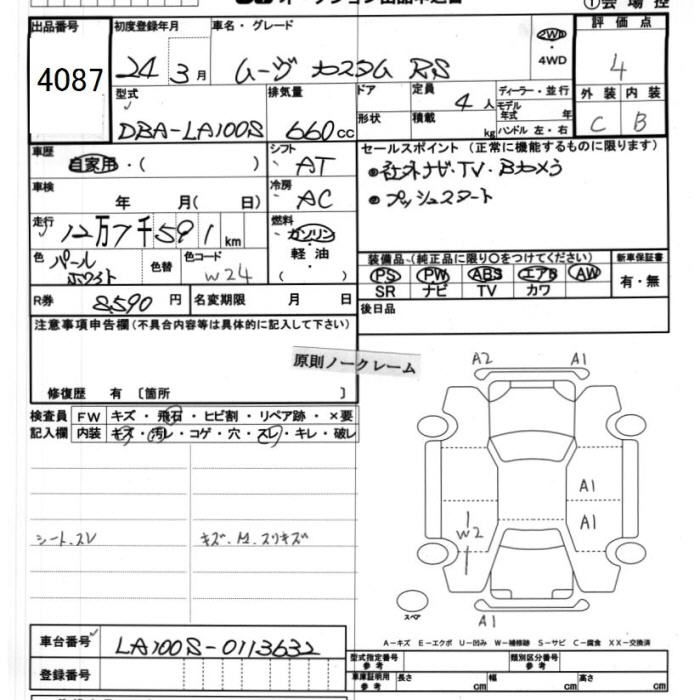 ①会場控
出品番号
4087
初度登録年月
24年3月
車名・グレード
ムーヴ カスタム RS
2WD
・
4WD
評価点
4
外装 内装
C B
型式
DBA-LA100S
排気量
660cc
ドア
形状
定員
4人
積載
kg
ディーラー・並行
モデル年式 年
ハンドル 左・右
車歴
自家用・( )
シフト
AT
セールスポイント(正常に機能するものに限ります)
●社外ナビ・TV・Bカメラ
●プッシュスタート
車検
年 月( 日)
冷房
AC
走行
12万7千591km
燃料
ガソリン
・
軽油
( )
色
パールホワイト
色替
色コード
W24
装備品(純正品に限り○をつけてください)
新車保証書
PS PW ABS エアB AW
有・無
SR ナビ TV カワ
R券
8590円
名変期限 月 日
後日品
注意事項申告欄(不具合内容等は具体的に記入して下さい)
原則ノークレーム
修復歴 有〔箇所 〕
検査員記入欄
FW キズ・飛石・ヒビ割・リペア跡・×要
内装 キズ・汚レ・コゲ・穴・スレ・キレ・破レ
シート.スレ
キズ.M.スリキズ
A2 A1
A1
A1
W2
A1
スペア
A-キズ E-エクボ U-凹み W-補修跡 S-サビ C-腐食 XX-交換済
車台番号
LA100S-0113632
登録番号
型式指定番号
参考
類別区分番号
参考
車庫証明用
参考
長さ cm 幅 cm 高さ cm